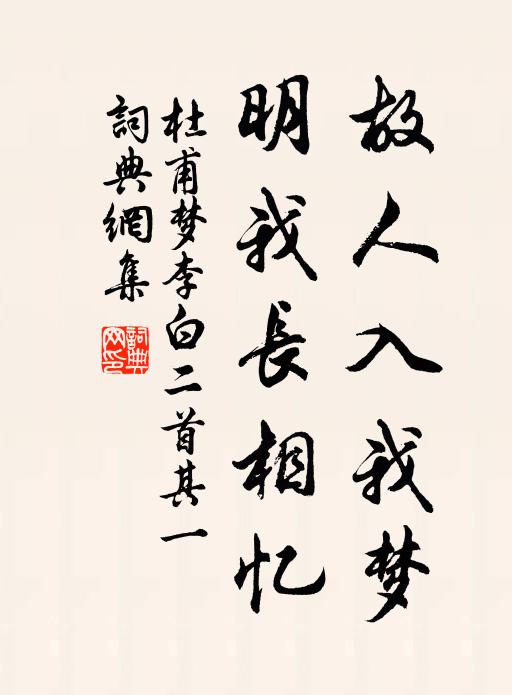 故人入我梦
明我長相忆
杜甫梦李白二首其一
詞典網集
詞典網印